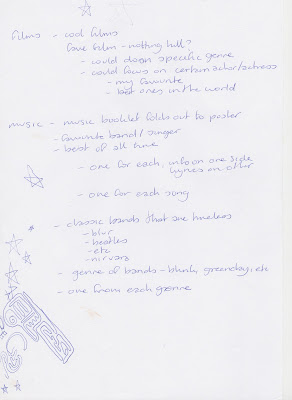 films - cool films
fave film - notting hill?
- could do on specific genre
- could focus on certain actor/actress
- my favourite
- best ones in the world
music - music booklet folds out to poster
- favourite band/singer
- best of all time
- one for each, info on one side
lyrics on other
- one for each song
- classic bands that are timeless
- blur
- beatles
- etc
- nirvana
- genre of bands - blink, greenday, etc
- one from each genre